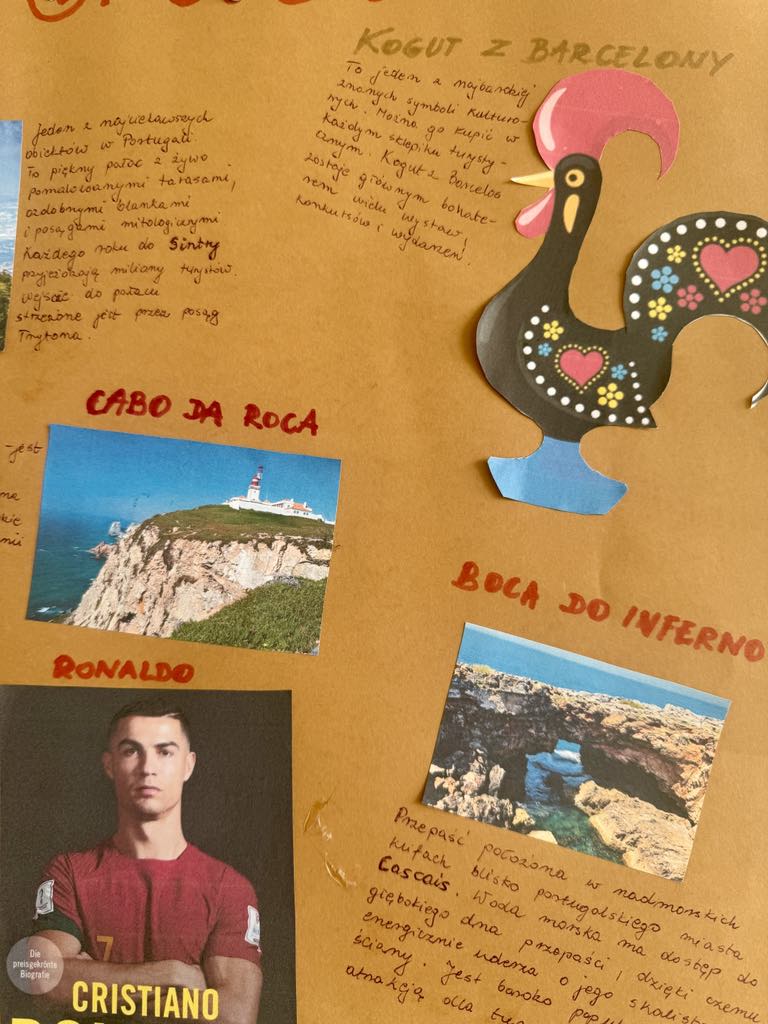 KOGUT Z BARCELONY
To jeden z najbardziej
znanych symboli kulturo-
nych. Można go kupić w
każdym sklepiku turysty-
cznym. Kogut z Barcelos
zostaje głównym bohate-
rem wielu wystaw,
konkursów i wydarzeń.
Jeden z najciekawszych
obiektów w Portugali.
To piękny pałac z żywo
pomalowanymi tarasami,
ozdobnymi blankami
i posągami mitologicznymi
Każdego roku do Sintry
przyjeżdżają miliony turystów.
Wejście do pałacu
strzeżone jest przez posąg
Trytona.
CABO DA ROCA
-jest
BOCA DO INFERNO
Przepaść położona w nadmorskich
klifach blisko portugalskiego miasta
Cascais. Woda morska ma dostęp do
głębokiego dna przepaści i dzięki czemu
energicznie uderza o jego skaliste
ściany. Jest bardzo
atrakcją dla
RONALDO
7
Die
preisgekrönte
Biografie
CRISTIANO